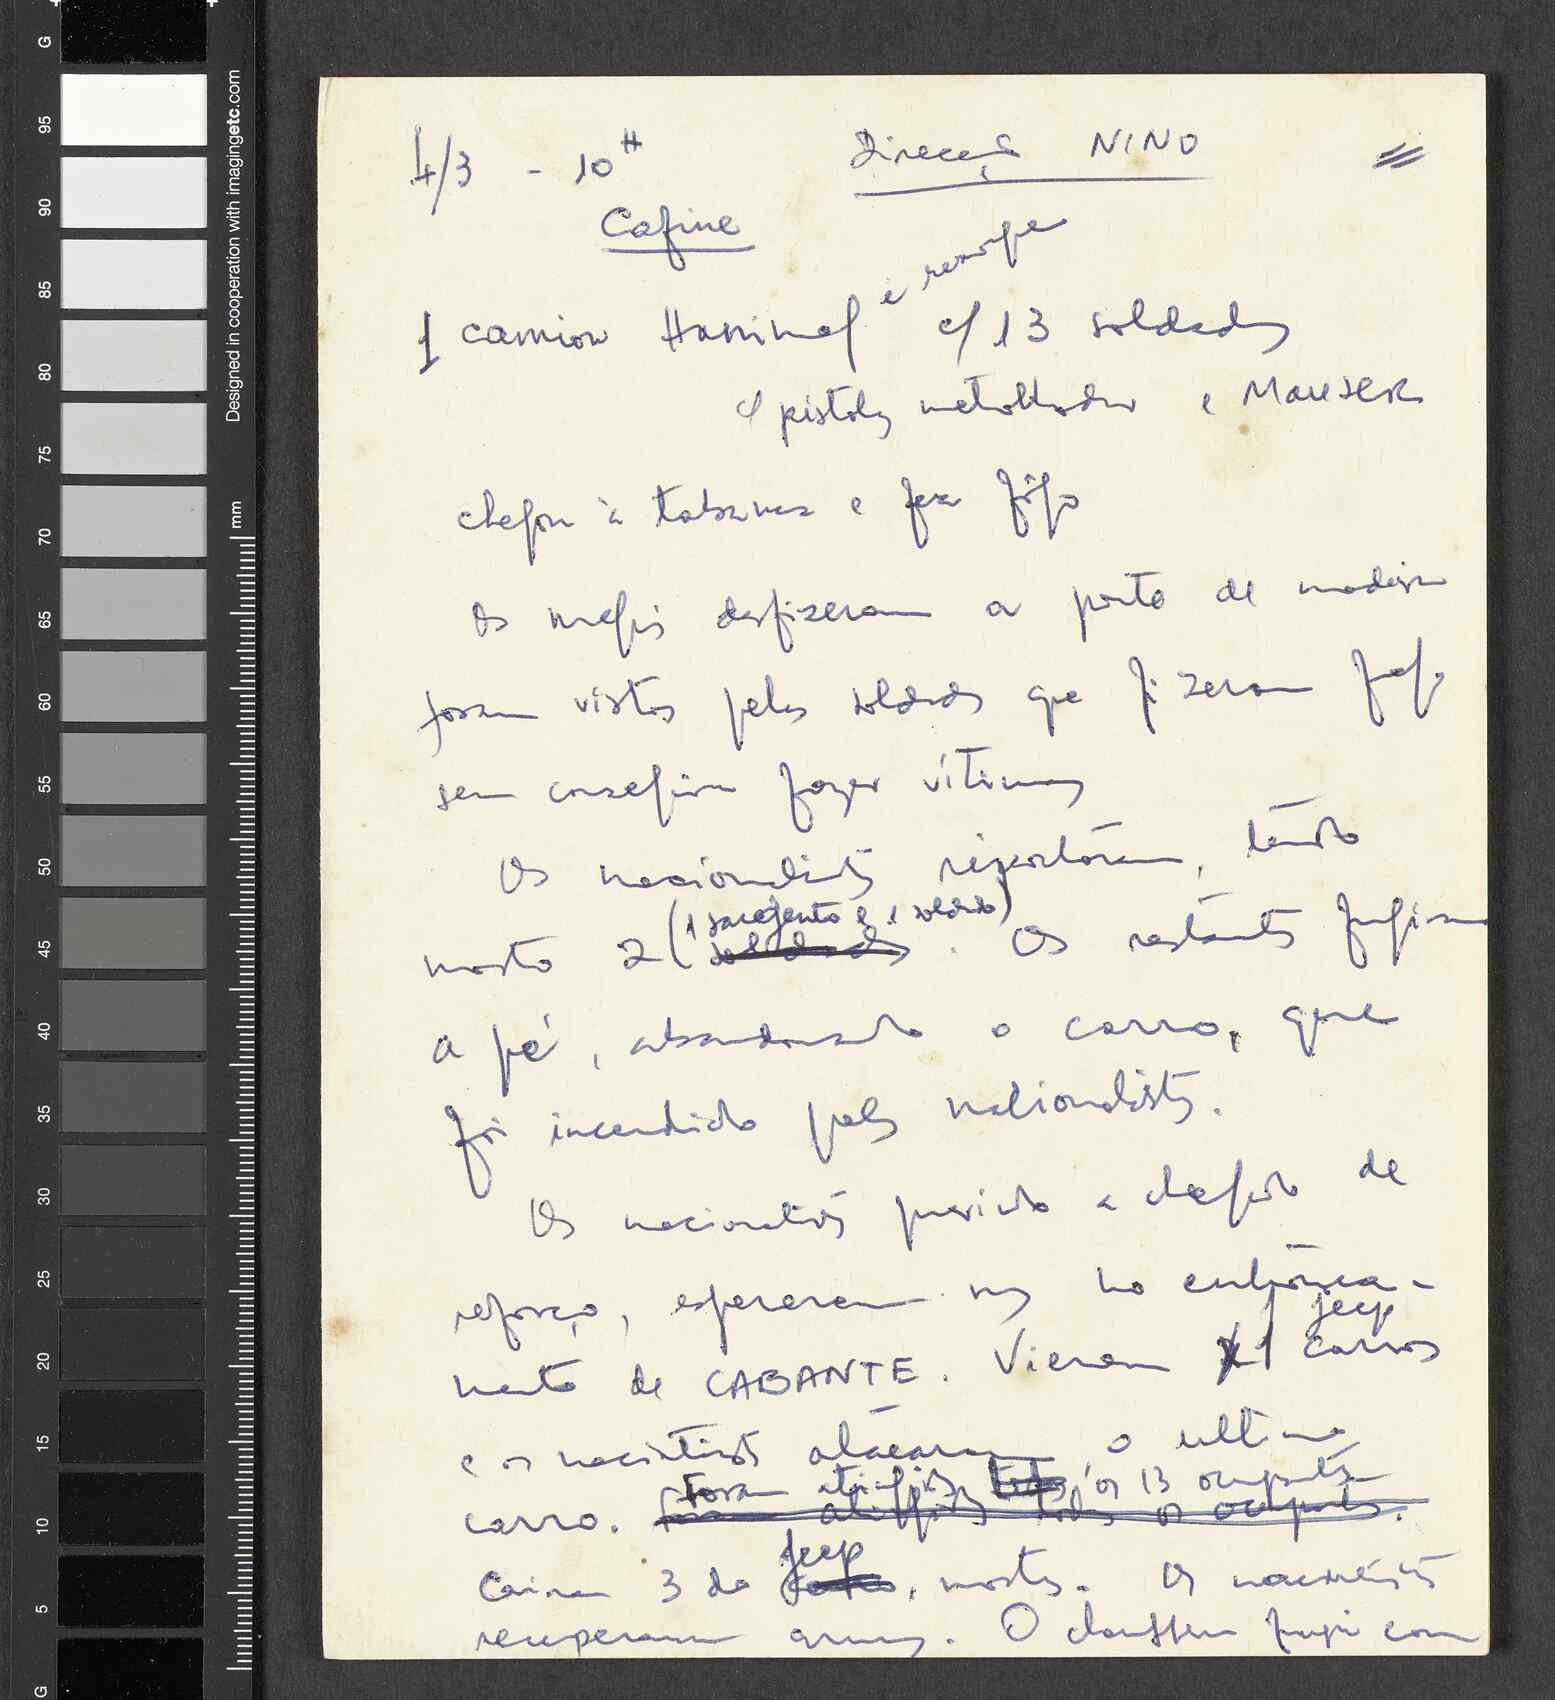 4/3 - 10H
Direcção NINO
Cafine
e reboque
1 camion Hanimag c/ 13 soldados
c/ pistolas metralhadoras e Mauser
chegou à tabanca e fez fogo
Os nossos desfizeram a ponte de madeira
foram vistos pelos soldados que fizeram fogo
sem conseguirem fazer vítimas
Os nacionalistas ripostaram, tendo
(1 sargento e 1 soldado)
morto 2 soldados. Os restantes fugiram
a pé, abandonando o carro, que
foi incendiado pelos nacionalistas.
Os nacionalistas prevendo a chegada de
reforço, esperaram no entronca-
jeep
mento de CABANTE. Vieram 1 carros
e os nacionalistas atacaram o ultimo
Foram atingidos todos os 13 ocupantes
carro. Foram atingidos todos os ocupantes.
jeep
Cairam 3 do carro, mortos. Os nacionalistas
recuperaram armas. O chauffeur fugiu com
Designed in cooperation with imagingetc.com
mm
G
95
90
85
80
75
70
65
60
55
50
45
40
35
30
25
20
15
10
5
G